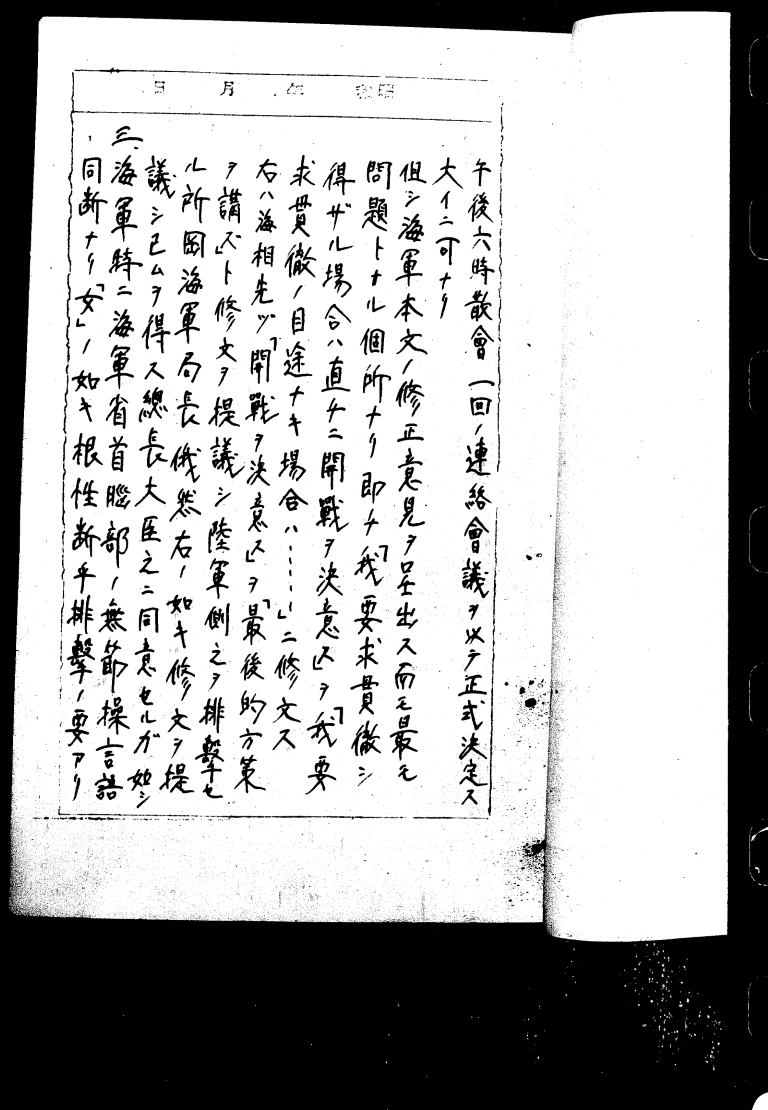 昭和 年 月 日
午後六時散會 一回ノ連絡會議ヲ以テ正式決定ス
大イニ可ナリ
但シ海軍本文ノ修正意見ヲ呈出ス而モ最モ
問題トナル個所ナリ即チ「我要求貫徹シ
得ザル場合ハ直チニ開戰ヲ決意ス」ヲ「我要
求貫徹ノ目途ナキ場合ハ……」ニ修文ス
右ハ海相先ヅ「開戰ヲ決意ス」ヲ「最後的方策
ヲ講ズ」ト修文ヲ提議シ陸軍側之ヲ排撃セ
ル所岡海軍局長俄然右ノ如キ修文ヲ提
議シ已ムヲ得ス總長大臣之ニ同意セルガ如シ
三、海軍特ニ海軍省首腦部ノ無節操言語
同断ナリ「女」ノ如キ根性断乎排撃ノ要アリ